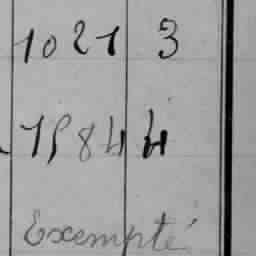 1021 3
15844
Exempté